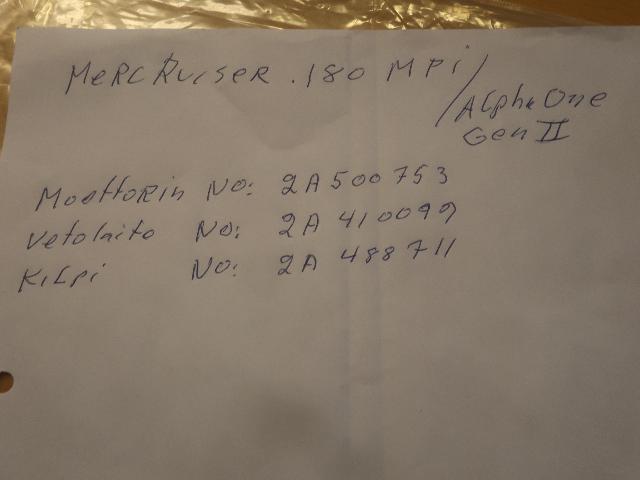 MeRCRuiser .180 MPi/
Alpha One
Gen II
Moottorin No: 2A500753
Vetolaite No: 2A 410099
Kilpi No: 2A 488711